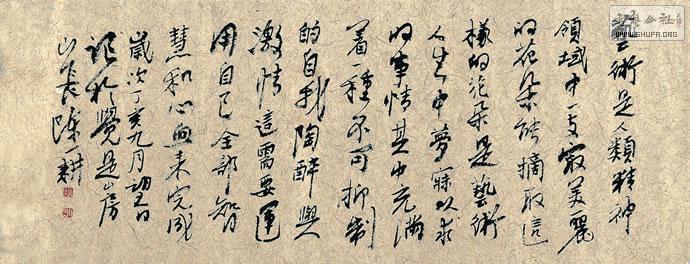 藝術是人類精神
領域中一支最美麗
的花朵能摘取這
樣的花朵是藝術
人生中夢寐以求
的事情其中充滿
着一種不可抑制
的自我陶醉與
激情這需要運
用自己全部智
慧和心血来完成
歲次丁亥九月望日
記於覺是山房
山長陳一耕
WWW.SHUFA.ORG